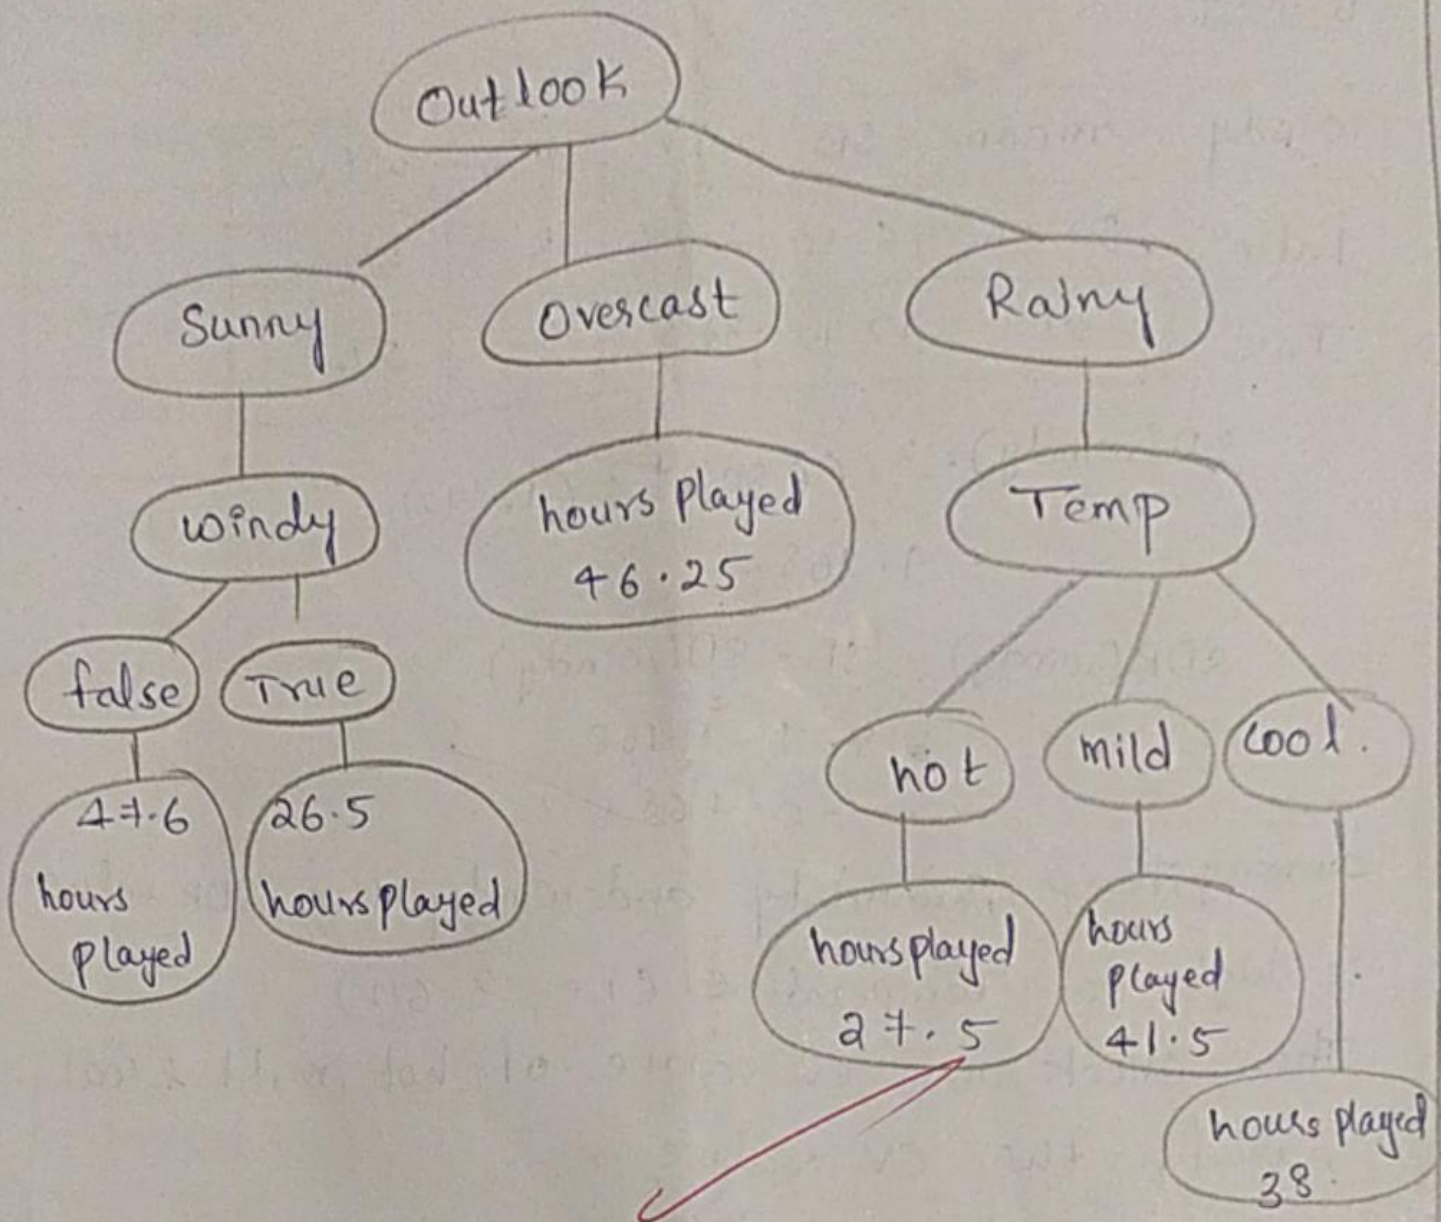 Outlook
Sunny
Overcast
Rainy
windy
hours Played
46.25
Temp
false
True
hot
mild
cool.
47.6
hours
played
26.5
hours played
hours played
27.5
hours
played
41.5
hours played
38.